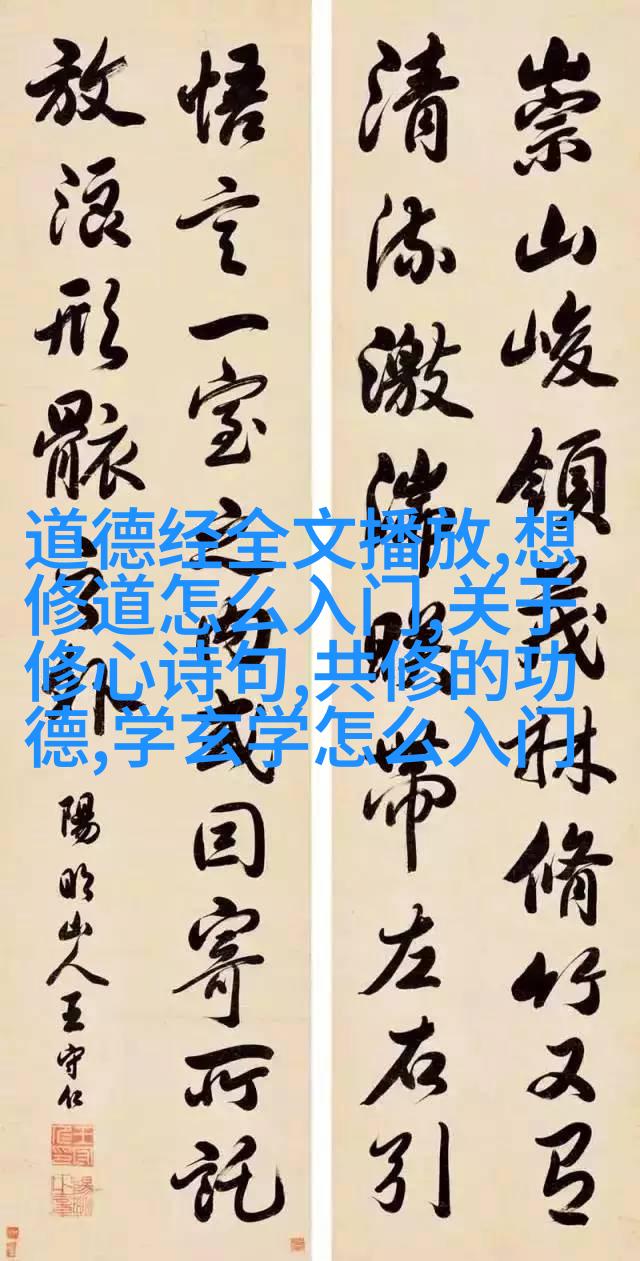 崇山峻領茂林脩竹又有
清流激湍暎帶左右引
悟言一室之內或因寄所託
放浪形骸之外
陽明山人王守仁
道德经全文播放,想
修道怎么入门,关于
修心诗句,共修的功
德,学玄学怎么入门